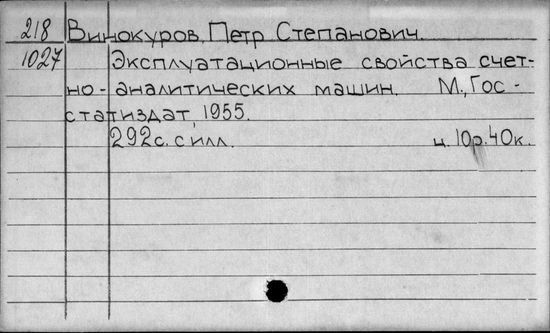 218 Винокуров, Петр Степанович.
1027 Эксплуатационные свойства счет-
но-аналитических машин. М., Гос-
статиздат, 1955.
292с. с илл. ц. 10р. 40к.